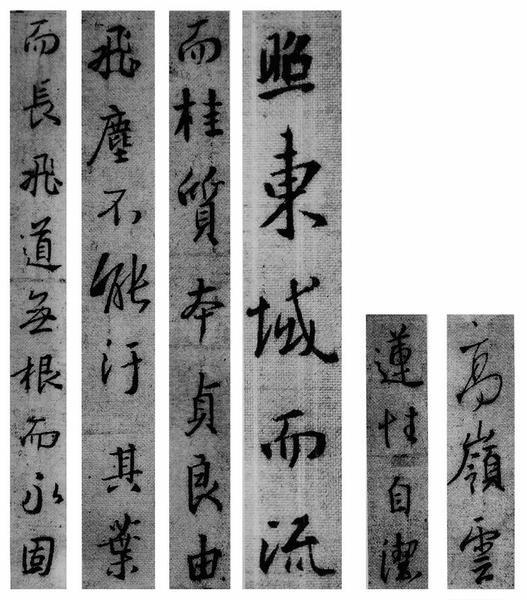 高嶺雲
蓮性自潔
照東域而流
而桂質本貞良由
飛塵不能汙其葉
而長飛道無根而永固